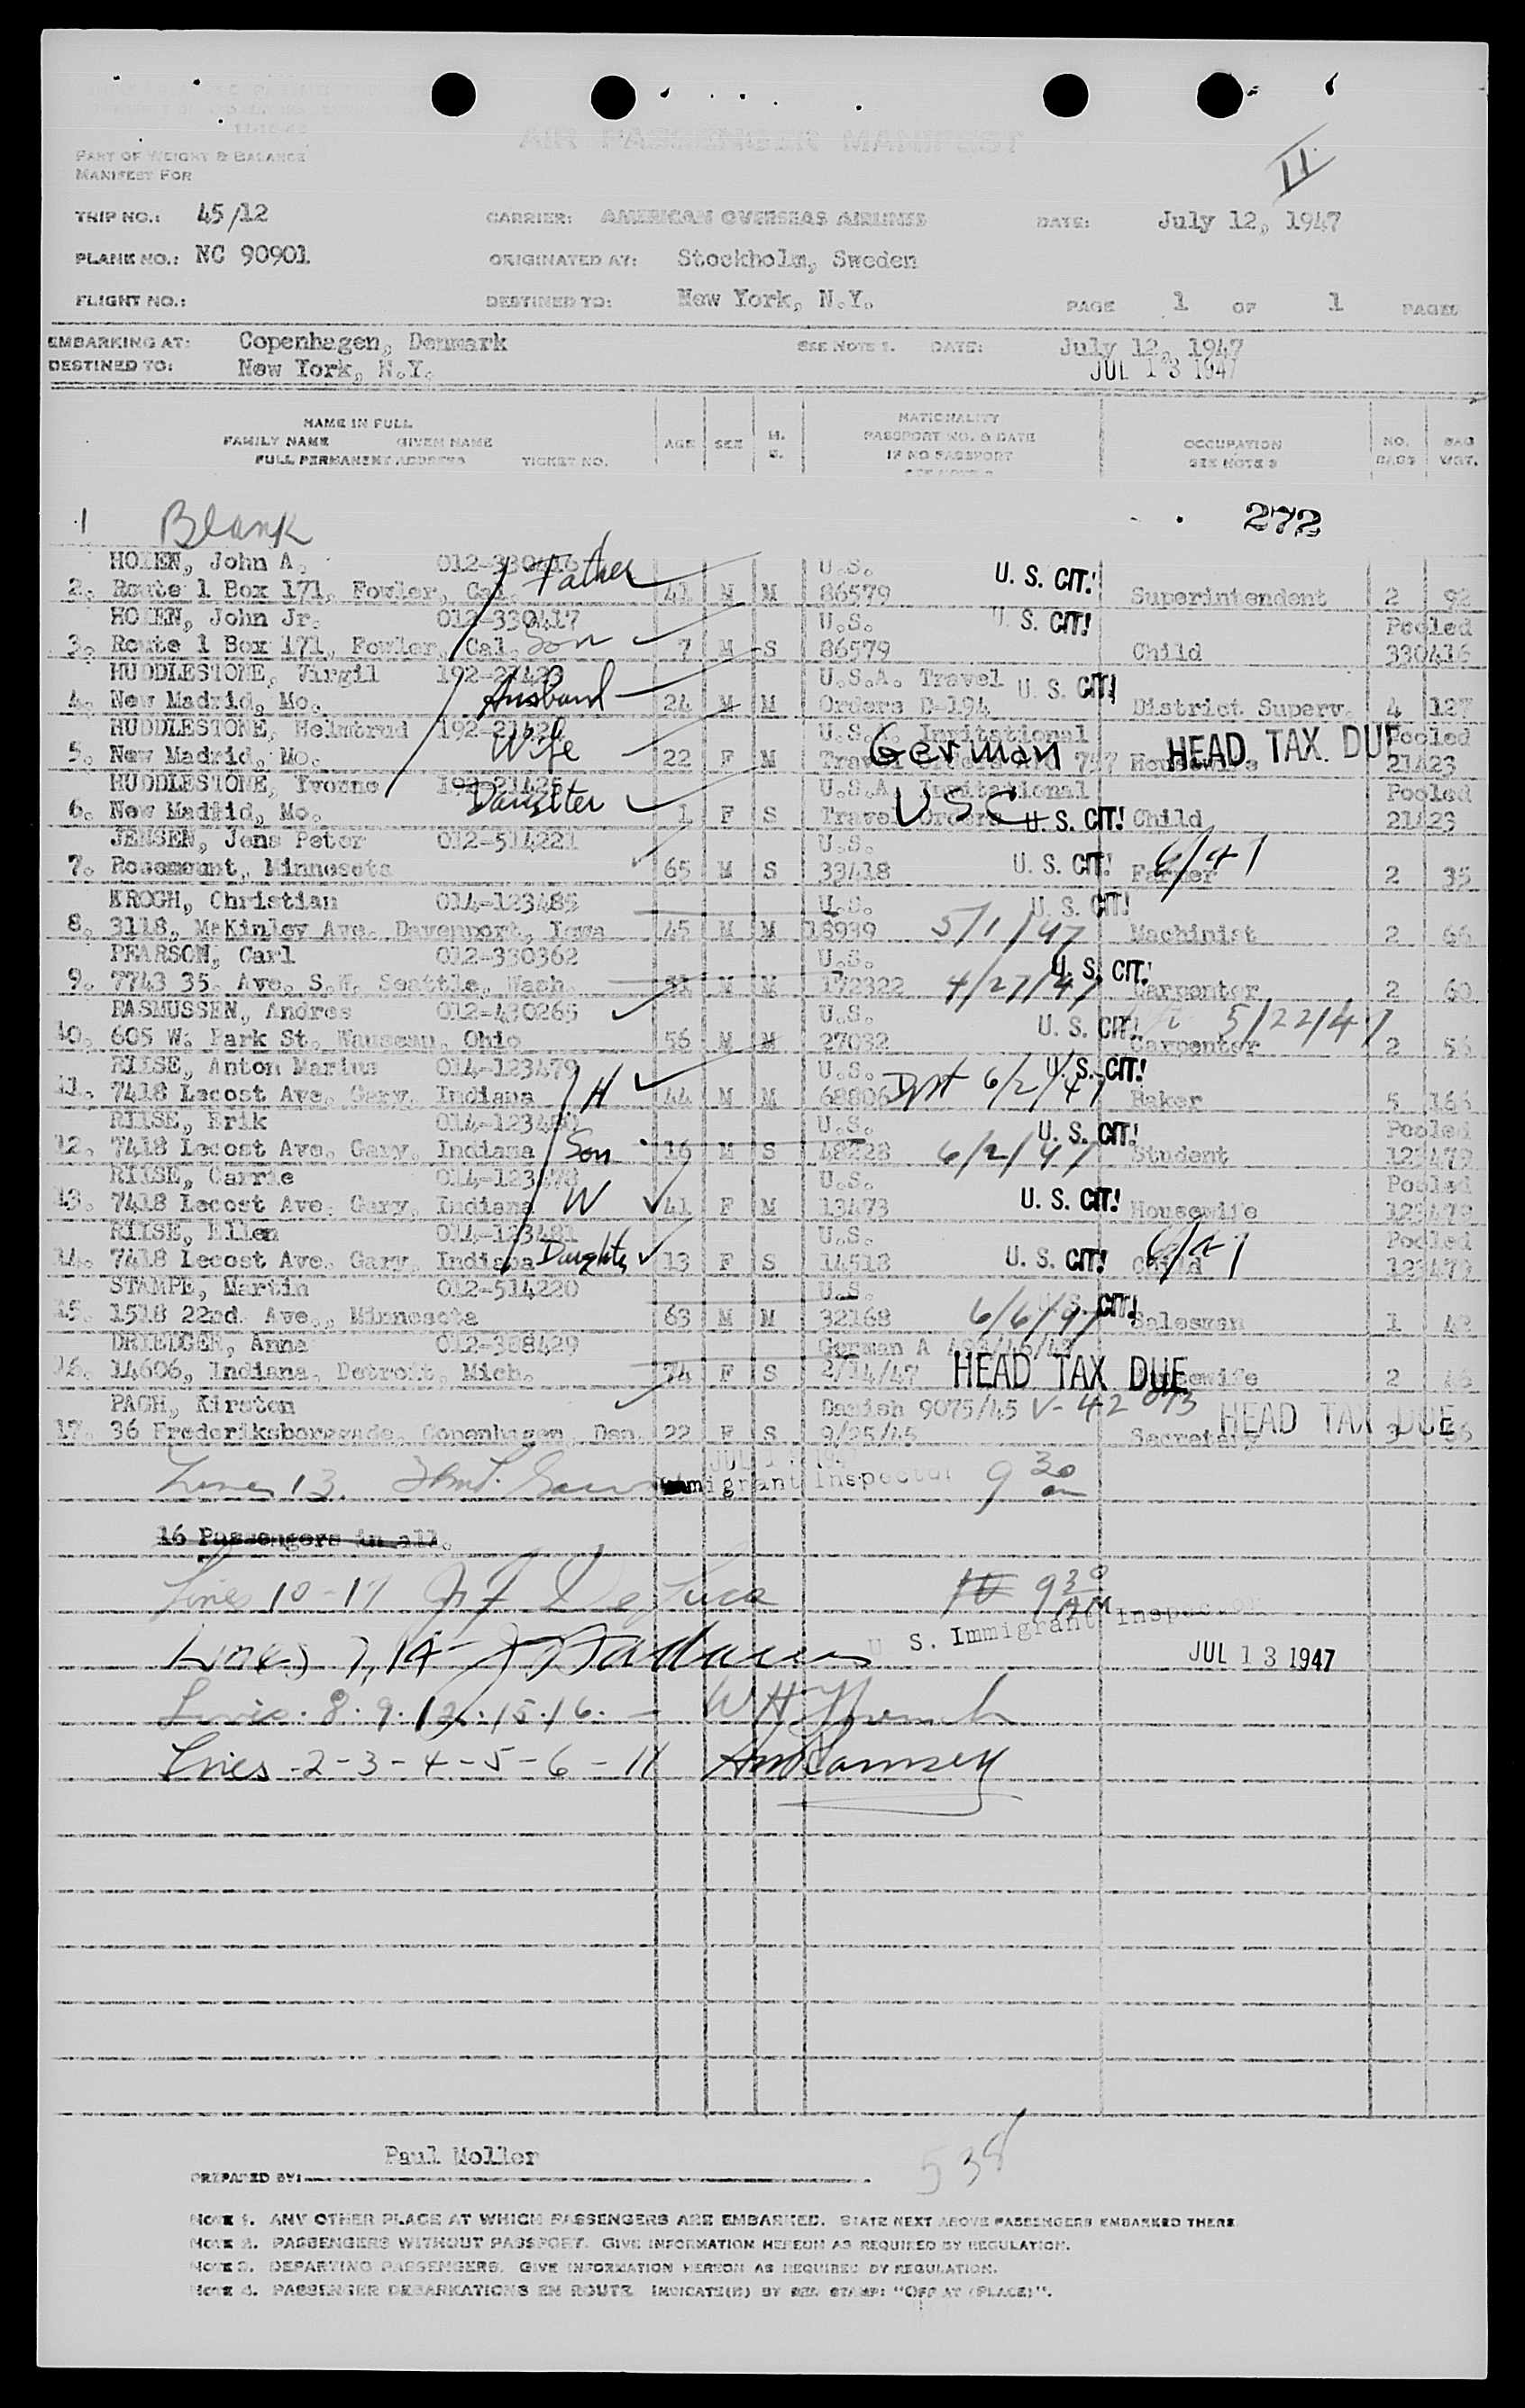 AIR PASSENGER MANIFEST
11
PART OF WEIGHT & BALANCE
MANIFEST FOR
TRIP NO.: 45/12 CARRIER: AMERICAN OVERSEAS AIRLINES DATE: July 12, 1947
PLANE NO.: NC 90901 ORIGINATED AT: Stockholm, Sweden
FLIGHT NO.: DESTINED TO: New York, N.Y. PAGE 1 OF 1 PAGES
EMBARKING AT: Copenhagen, Denmark SEE NOTE 1. DATE: July 12, 1947
DESTINED TO: New York, N.Y. JUL 13 1947
NAME IN FULL NATIONALITY
FAMILY NAME GIVEN NAME AGE SEX M. S. PASSPORT NO. & DATE OCCUPATION NO. BAGS BAG WGT.
FULL PERMANENT ADDRESS TICKET NO. IF NO PASSPORT SEE NOTE 3
1 Blank 272
John A. 012-330416 Father U.S. U. S. CIT!
2. Route 1 Box 171, Fowler, Cal. 41 M M 86579 Superintendent 2 92
John Jr. 012-330417 U.S. U. S. CIT! Pooled
3. Route 1 Box 171, Fowler, Cal. Son 7 M S 86579 Child 330416
HUDDLESTONE, Virgil 192-21423 Husband U.S.A. Travel U. S. CIT!
4. New Madrid, Mo. 24 M M Orders D-194 District Superv. 4 127
HUDDLESTONE, Helmtrud 192-21424 Wife U.S.A. Invitational German HEAD TAX DUE Pooled
5. New Madrid, Mo. 22 F M Travel 757 Housewife 21423
HUDDLESTONE, Yvonne 192-21425 Daughter U.S.A. Invitational USC Pooled
6. New Madrid, Mo. 1 F S Travel Orders U. S. CIT! Child 21423
JENSEN, Jens Peter 012-514221 U.S. U. S. CIT! 6/47
7. Rosemount, Minnesota 65 M S 39418 Farmer 2 35
KROGH, Christian 014-123485 U.S. U. S. CIT!
8. 3118, McKinley Ave. Davenport, Iowa 45 M M 18939 5/1/47 Machinist 2 66
PEARSON, Carl 012-330362 U.S. U. S. CIT!
9. 7743 35. Ave. S.W. Seattle, Wash. M M 172322 4/27/47 Carpenter 2 60
RASMUSSEN, Andres 012-430265 U.S. U. S. CIT! 5/22/47
10. 605 W. Park St. Wauseau, Ohio 56 M M 27032 Carpenter 2 56
RIISE, Anton Marius 014-123479 H U.S. U. S. CIT!
11. 7418 Lecost Ave. Gary, Indiana 44 M M 68806 6/2/47 Baker 5 166
RIISE, Erik 014-123480 Son U.S. U. S. CIT! Pooled
12. 7418 Lecost Ave. Gary, Indiana 16 M S 48223 6/2/47 Student 123479
RIISE, Carrie 014-123478 W U.S. U. S. CIT! Pooled
13. 7418 Lecost Ave. Gary, Indiana 41 F M 13473 Housewife 123479
RIISE, Ellen 014-123481 Daughter U.S. U. S. CIT! Pooled
14. 7418 Lecost Ave. Gary, Indiana 13 F S 14513 Child 123479
STAMPE, Martin 012-514220 U.S. U. S. CIT!
15. 1518 22nd. Ave., Minnesota 63 M M 32168 6/6/47 Salesman 1 42
DRIEDGER, Anna 012-368429 German A
16. 14606, Indiana, Detroit, Mich. 74 F S 2/14/47 HEAD TAX DUE Housewife 2 46
PAGH, Kirsten Danish 9075/45 V-42 073 HEAD TAX DUE
17. 36 Frederiksborggade, Copenhagen, Den. 22 F S 9/25/45 Secretary 3 56
Line 13. Immigrant Inspector 9 30 am
16 Passengers in all.
Lines 10-17 9 30 AM
U. S. Immigrant Inspector
Lines 7, 14 JUL 13 1947
Lines. 8. 9. 12. 15. 16.
Lines 2-3-4-5-6-11 Ramsey
Paul Moller
PREPARED BY: 538
NOTE 1. ANY OTHER PLACE AT WHICH PASSENGERS ARE EMBARKED. STATE NEXT ABOVE PASSENGERS EMBARKED THERE.
NOTE 2. PASSENGERS WITHOUT PASSPORT. GIVE INFORMATION HEREON AS REQUIRED BY REGULATION.
NOTE 3. DEPARTING PASSENGERS. GIVE INFORMATION HEREON AS REQUIRED BY REGULATION.
NOTE 4. PASSENGER DEBARKATIONS EN ROUTE INDICATE(D) BY RED STAMP: "OFF AT (PLACE)".